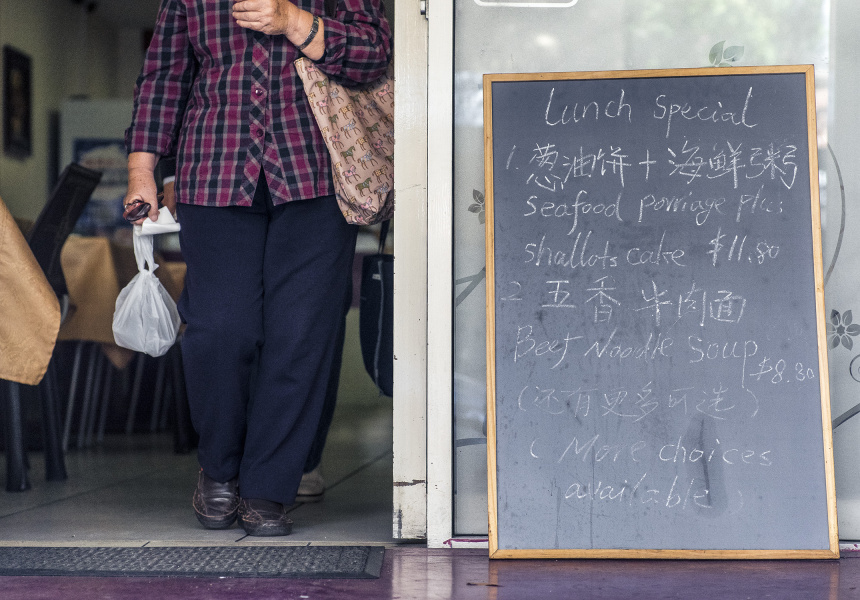 Lunch Special
1. 葱油饼+海鲜粥
Seafood porriage plus
shallots cake $11.80
2 五香牛肉面
Beef Noodle Soup
$8.80
(还有更多可选)
(More choices
available)